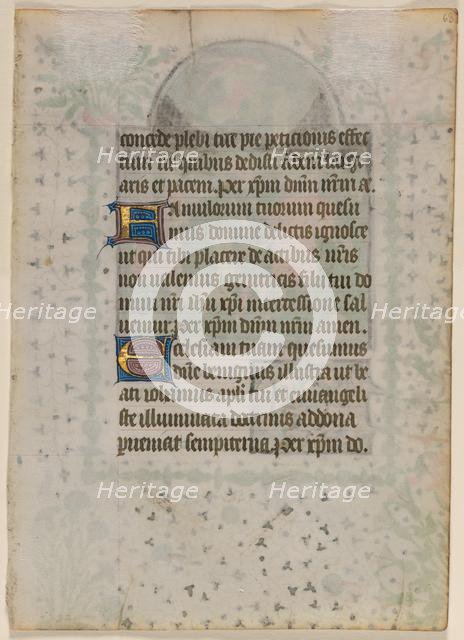 68
concede plebi tue pie peticionis effec
tum quibus dedisti
aris et pacem. Per xp̄m dn̄m nr̄m
Famulorum tuorum quesu
mus domine delictis ignosce
ut qui tibi placere de actibus nr̄is
non valemus genitricis filii tui do
mini nr̄i ih̄u xp̄i intercessione sal
uemur. Per xp̄m dn̄m nr̄m amen.
Ecclesiam tuam quesumus
dn̄e benignus illustra ut be
ati iohannis apl̄i tui et euuangeli
ste illuminata doctrinis ad dona
perueniat sempiterna. Per xp̄m do.
Heritage Heritage
Heritage Heritage Heritage
Heritage Heritage